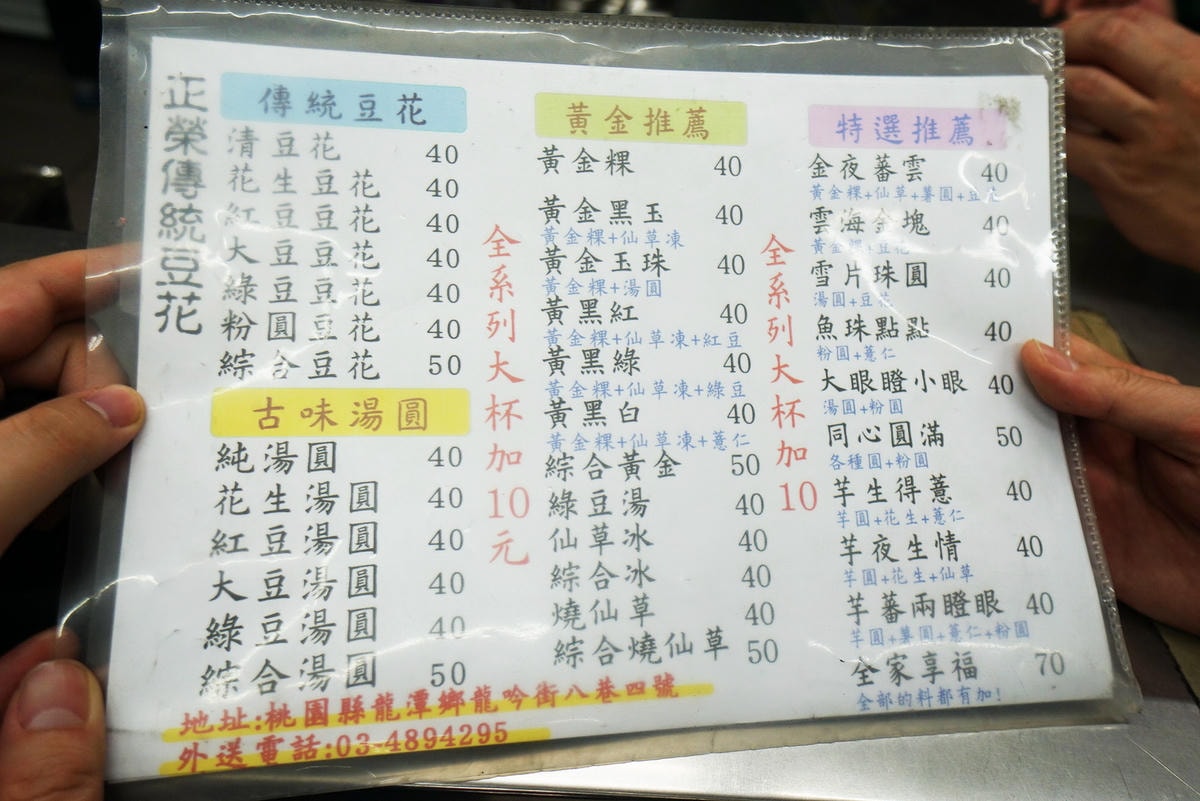 正榮傳統豆花
傳統豆花
清豆花 40
花生豆花 40
紅豆豆花 40
大豆豆花 40
綠豆豆花 40
粉圓豆花 40
綜合豆花 50
古味湯圓
純湯圓 40
花生湯圓 40
紅豆湯圓 40
大豆湯圓 40
綠豆湯圓 40
綜合湯圓 50
全系列大杯加10元
黃金推薦
黃金粿 40
黃金黑玉 40
黃金粿+仙草凍
黃金玉珠 40
黃金粿+湯圓
黃黑紅 40
黃金粿+仙草凍+紅豆
黃黑綠 40
黃金粿+仙草凍+綠豆
黃黑白 40
黃金粿+仙草凍+薏仁
綜合黃金 50
綠豆湯 40
仙草冰 40
綜合冰 40
燒仙草 40
綜合燒仙草 50
全系列大杯加10
特選推薦
金夜蕃雲 40
黃金粿+仙草+薯圓+豆花
雲海金塊 40
黃金粿+豆花
雪片珠圓 40
湯圓+豆花
魚珠點點 40
粉圓+薏仁
大眼瞪小眼 40
湯圓+粉圓
同心圓滿 50
各種圓+粉圓
芋生得薏 40
芋圓+花生+薏仁
芋夜生情 40
芋圓+花生+仙草
芋蕃兩瞪眼 40
芋圓+薯圓+薏仁+粉圓
全家享福 70
全部的料都有加!
地址:桃園縣龍潭鄉龍吟街八巷四號
外送電話:03-4894295